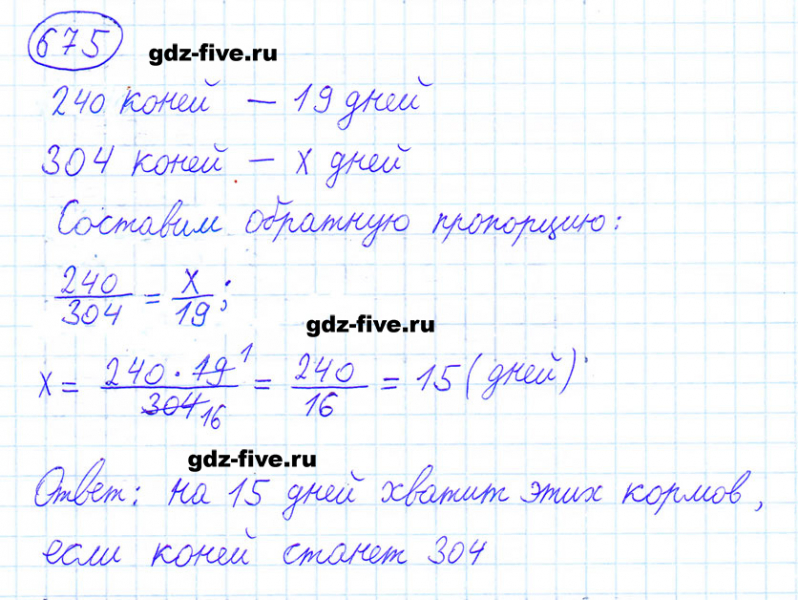 675 gdz-five.ru
240 коней — 19 дней
304 коней — x дней
Составим обратную пропорцию:
240/304 = x/19;
gdz-five.ru
x = 240 · 19 1/304 16 = 240/16 = 15 (дней)
gdz-five.ru
Ответ: на 15 дней хватит этих кормов,
если коней станет 304